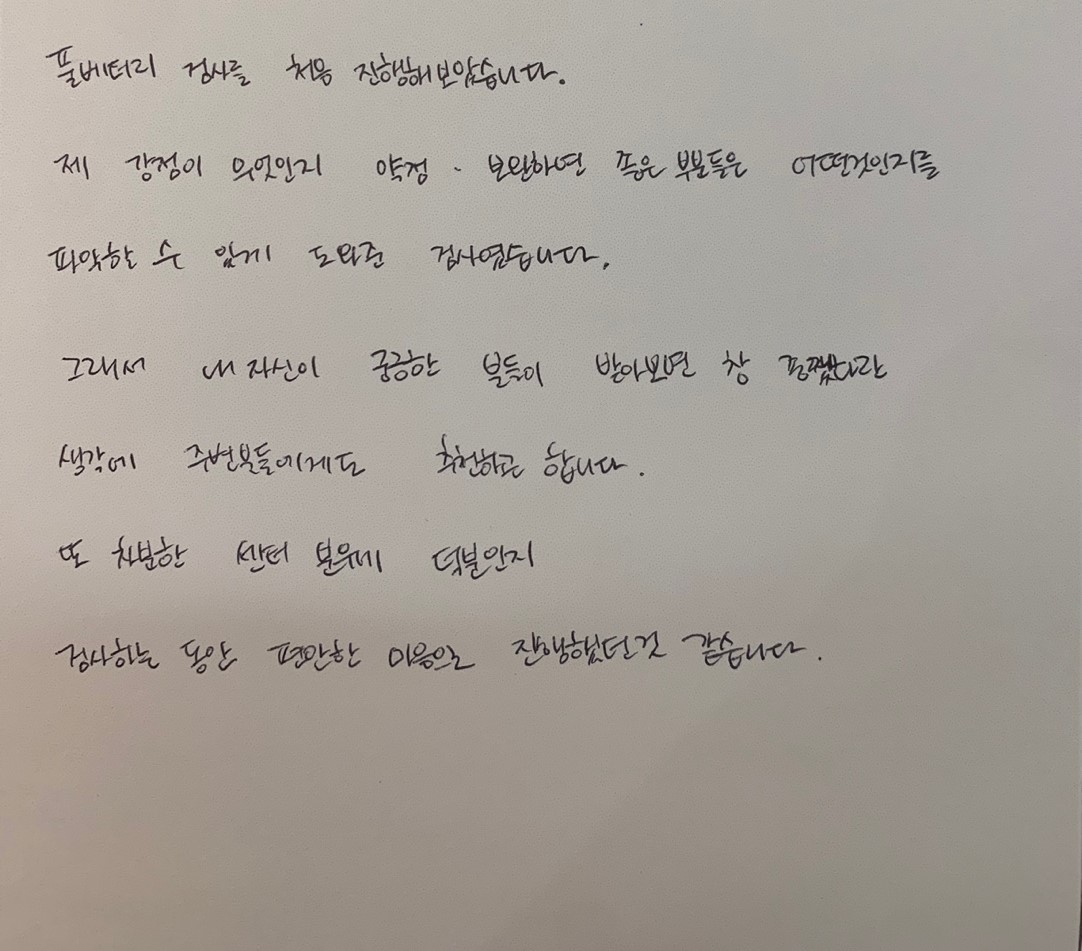 풀베터리 검사를 처음 진행해보았습니다.
제 강점이 무엇인지 약점 · 보완하면 좋은 부분들은 어떤것인지를
파악할 수 있게 도와준 검사였습니다.
그래서 내 자신이 궁금한 분들이 받아보면 참 좋겠다란
생각에 주변분들에게도 추천하곤 합니다.
또 차분한 센터 분위기 덕분인지
검사하는 동안 편안한 마음으로 진행했던것 같습니다.